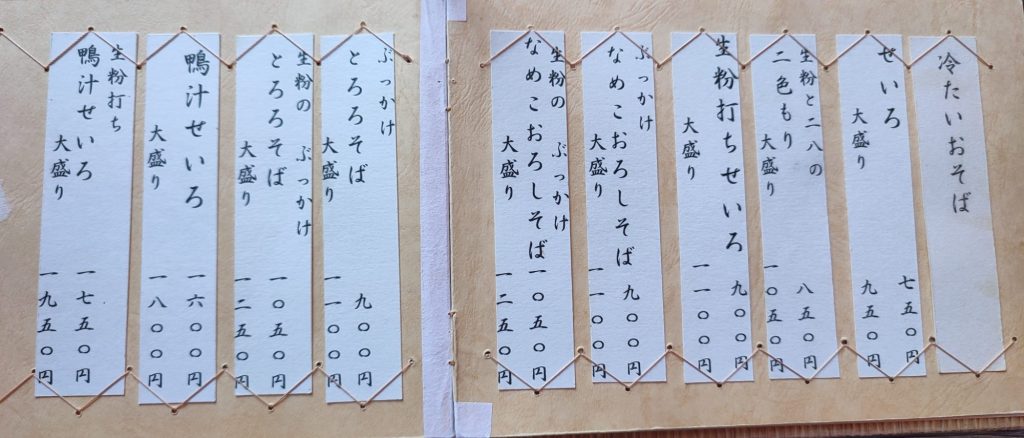 冷たいおそば
せいろ
七五〇円
大盛り
九五〇円
生粉と二八の
二色もり
八五〇円
大盛り
一〇五〇円
生粉打ちせいろ
九〇〇円
大盛り
一一〇〇円
ぶっかけ
なめこおろしそば
九〇〇円
大盛り
一一〇〇円
生粉の ぶっかけ
なめこおろしそば
一〇五〇円
大盛り
一二五〇円
ぶっかけ
とろろそば
九〇〇円
大盛り
一一〇〇円
生粉の ぶっかけ
とろろそば
一〇五〇円
大盛り
一二五〇円
鴨汁せいろ
一六〇〇円
大盛り
一八〇〇円
生粉打ち
鴨汁せいろ
一七五〇円
大盛り
一九五〇円